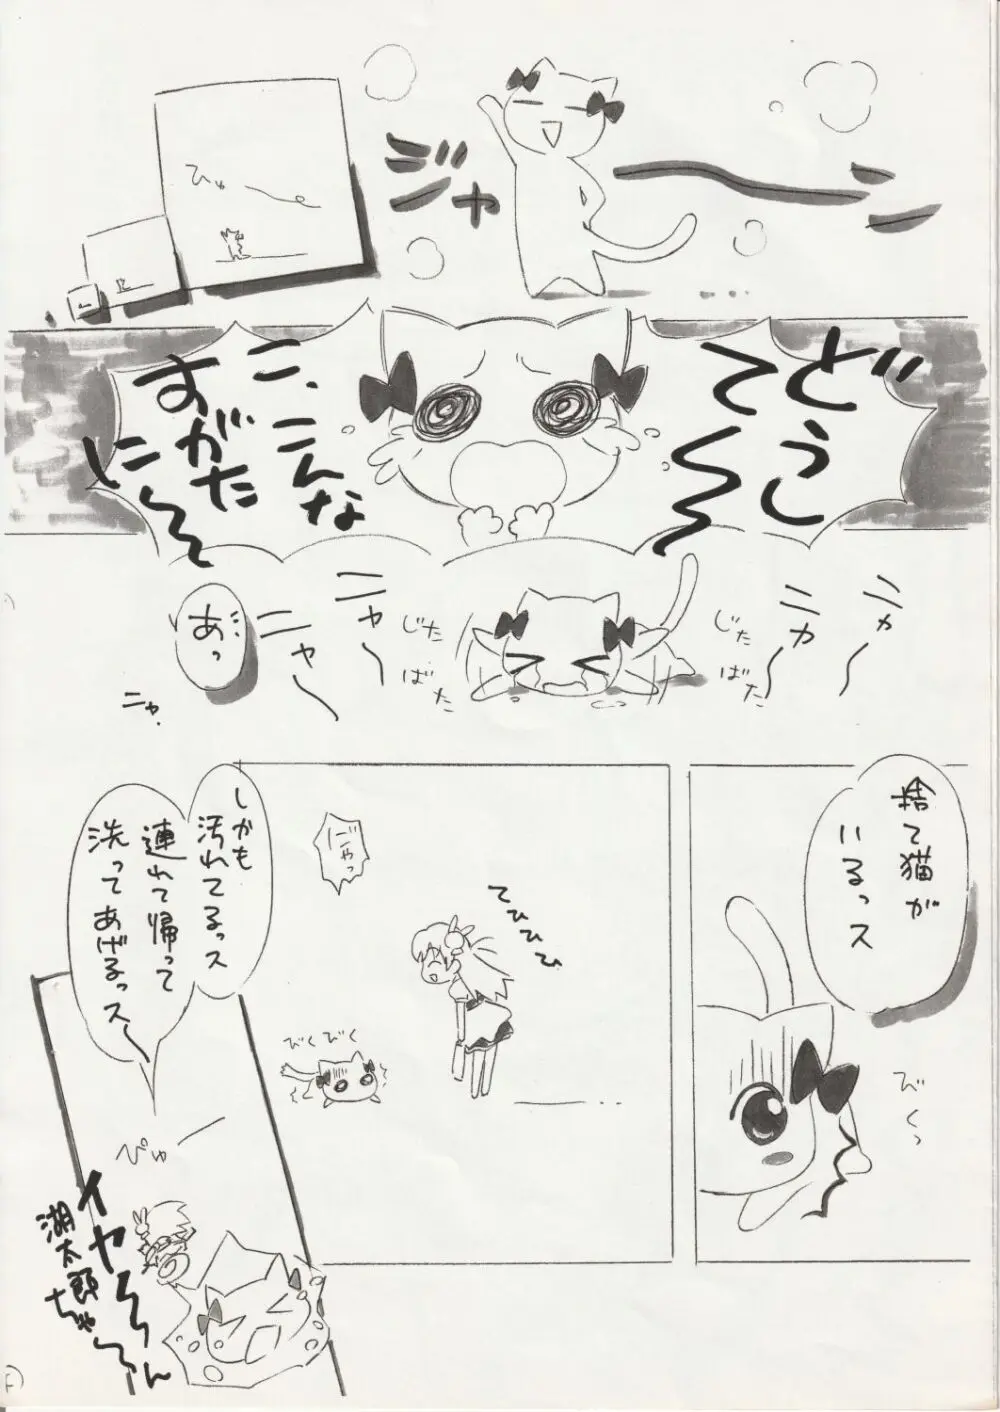 ジャーン
ひゅー
どうし
て〜〜
こ、こんな
すがた
に〜〜
ニャ〜
ニャ〜
じた
ばた
じた
ばた
ニャ〜
ニャ〜
あっ
ニャ.
捨て猫が
いるっス
びくっ
てひひひひ
にゃっ
びくびく
しかも
汚れてるっス
連れて帰って
洗ってあげるっス〜
ぴゅー
イヤ〜〜ん
湖太郎
ちゃ〜〜ん